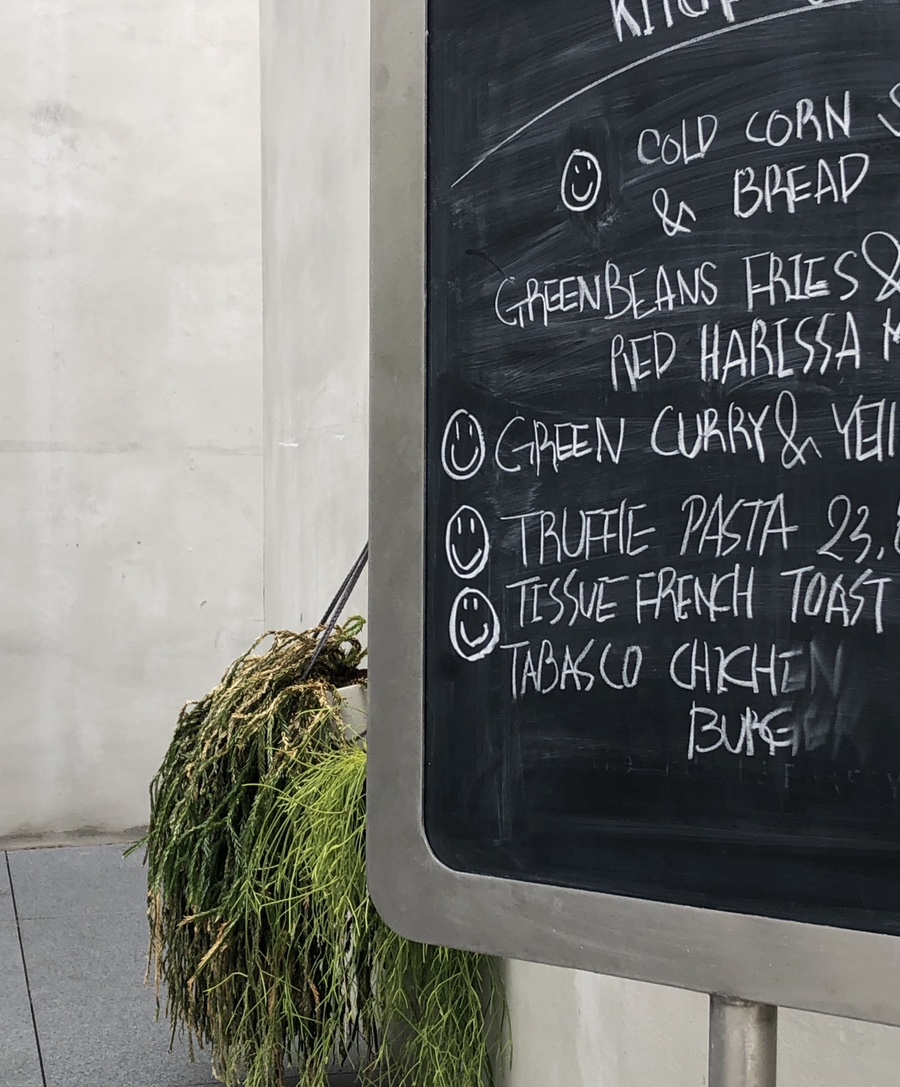 COLD CORN
& BREAD
GREENBEANS FRIES &
RED HARISSA
GREEN CURRY &
TRUFFLE PASTA 23,
TISSUE FRENCH TOAST
TABASCO CHICKEN
BURGER